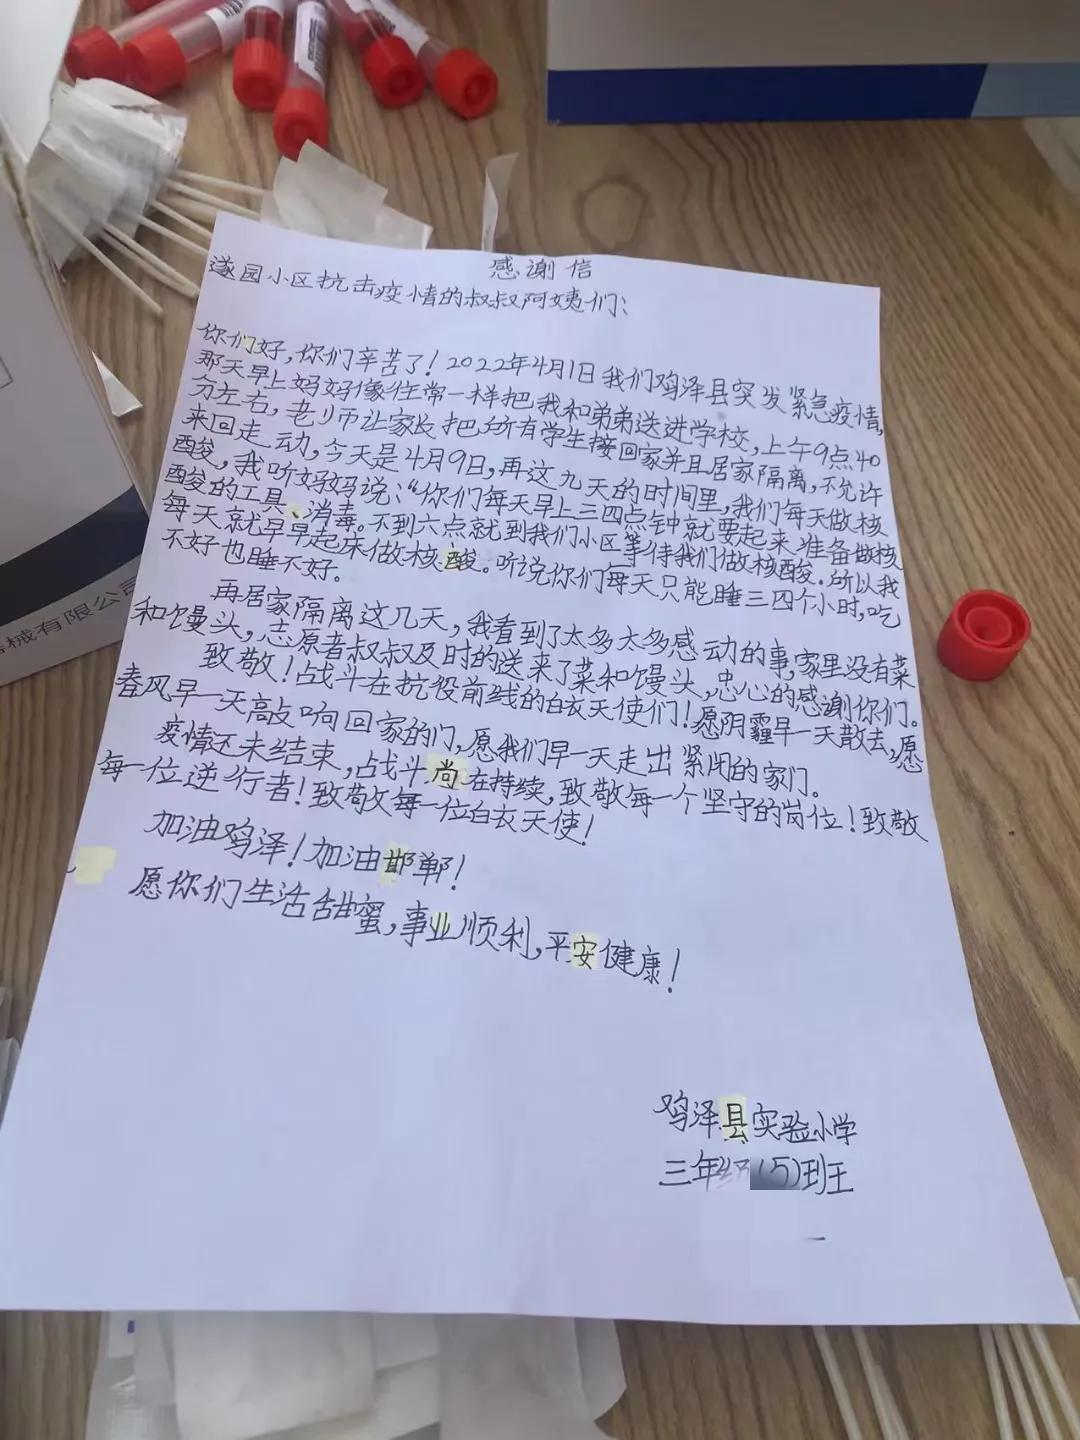 感谢信
遂园小区抗击疫情的叔叔阿姨们:
你们好,你们辛苦了!2022年4月1日我们鸡泽县突发紧急疫情,
那天早上妈妈像往常一样把我和弟弟送进学校,上午9点40
分左右,老师让家长把所有学生接回家并且居家隔离,不允许
来回走动,今天是4月9日,再这九天的时间里,我们每天做核
酸,我听妈妈说:“你们每天早上三四点钟就要起来准备做核
酸的工具、消毒。不到六点就到我们小区等待我们做核酸.所以我
每天就早早起床做核酸。听说你们每天只能睡三四个小时,吃
不好也睡不好.
再居家隔离这几天,我看到了太多太多感动的事,家里没有菜
和馒头,志愿者叔叔及时的送来了菜和馒头,忠心的感谢你们。
致敬!战斗在抗役前线的白衣天使们!愿阴霾早一天散去,愿
春风早一天敲响回家的门,愿我们早一天走出紧闭的家门。
疫情还未结束,战斗尚在持续,致敬每一个坚守的岗位!致敬
每一位逆行者!致敬每一位白衣天使!
加油鸡泽!加油邯郸!
愿你们生活甜蜜,事业顺利,平安健康!
鸡泽县实验小学
三年级(5)班
械有限公司